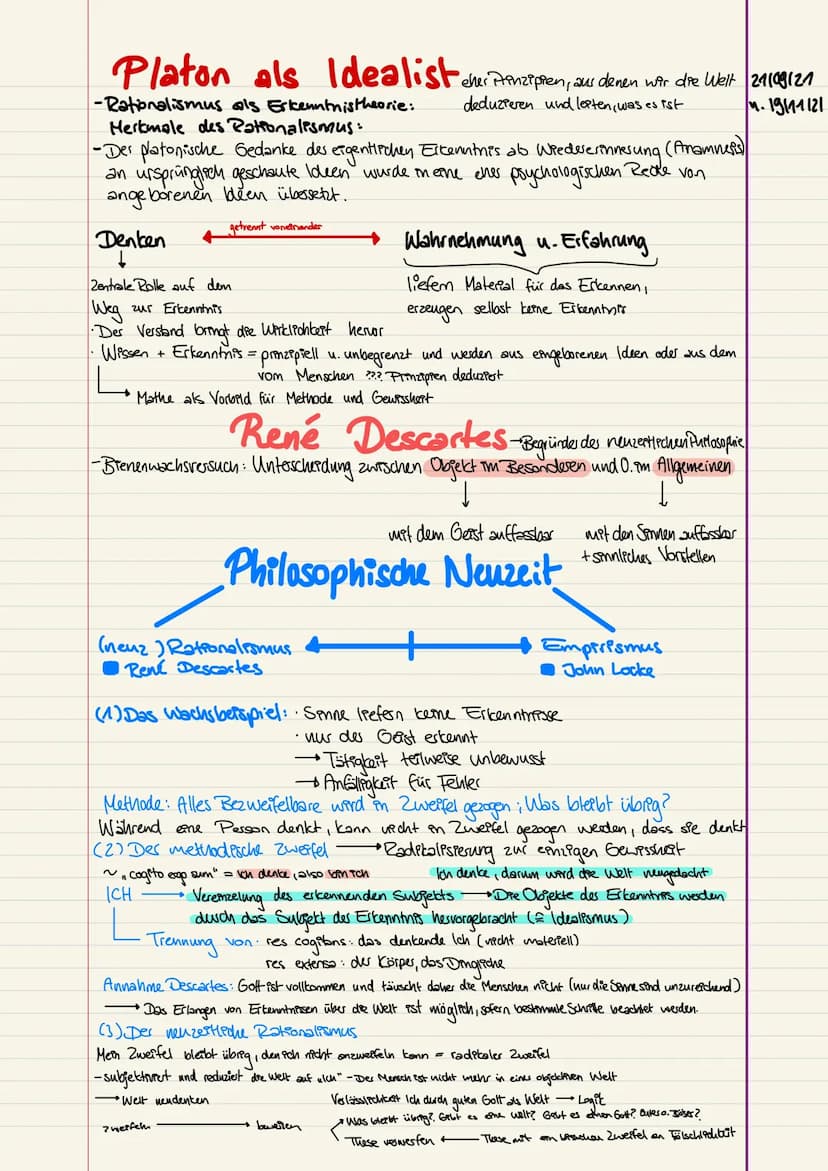 Platon als Idealist
eher Prinzipien, aus denen wir die Welt
21/09/21
-Rationalismus als Erkenntnistheorie:
deduzieren und leiten, was es ist
u. 19/11/21
Merkmale des Rationalismus:
-Der platonische Gedanke des eigentlichen Erkenntnis als Wiedererinnerung (Anamnesis)
an ursprünglich geschaute Ideen wurde in eine eher psychologischen Rede von
angeborenen Ideen übersetzt.
Denken
getrennt voneinander
Wahrnehmung u. Erfahrung
Zentrale Rolle auf dem
liefern Material für das Erkennen,
Weg zur Erkenntnis
erzeugen selbst keine Erkenntnis
·Der Verstand bringt die Wirklichkeit hervor
· Wissen + Erkenntnis = prinzipiell u. unbegrenzt und werden aus eingeborenen Ideen oder aus dem
vom Menschen ??? Prinzipien deduziert
→ Mathe als Vorbild für Methode und Gewissheit
René Descartes
→Begründer des neuzeitlichen Philosophie
-Bienenwachsversuch: Unterscheidung zwischen Objekt im Besonderen und O. im Allgemeinen
mit dem Geist auffassbar
mit den Sinnen auffassbar
+ sinnliches Vorstellen
Philosophische Neuzeit
(neuz.) Rationalismus
Empirismus
René Descartes
John Locke
(1) Das Wachsbeispiel: · Sinne liefern keine Erkenntnisse
· nur der Geist erkennt
→ Tätigkeit teilweise unbewusst
→ Anfälligkeit für Fehler
Methode: Alles Bezweifelbare wird in Zweifel gezogen; Was bleibt übrig?
Während eine Person denkt, kann nicht in Zweifel gezogen werden, dass sie denkt
(2) Der methodische Zweifel → Radikalisierung zur einzigen Gewissheit
~ „cogito ergo sum" = Ich denke, also bin ich
Ich denke, darum wird die Welt neugedacht
ICH → Vereinzelung des erkennenden Subjekts → Die Objekte des Erkenntnis werden
durch das Subjekt der Erkenntnis hervorgebracht (≙ Idealismus)
Trennung von · res cogitans: das denkende Ich (nicht materiell)
res extensa: der Körper, das Dingliche
Annahme Descartes: Gott ist vollkommen und täuscht daher die Menschen nicht (nur die Sinne sind unzureichend)
→ Das Erlangen von Erkenntnissen über die Welt ist möglich, sofern bestimmte Schritte beachtet werden.
(3) Der neuzeitliche Rationalismus
Mein Zweifel bleibt übrig, den ich nicht anzweifeln kann = radikaler Zweifel
-subjektiviert und reduziert die Welt auf „Ich" - Der Mensch ist nicht mehr in einer objektiven Welt
→ Welt neudenken
Verlässlichkeit Ich durch guten Gott als Welt → Logik
Was bleibt übrig? Gibt es eine Welt? Gibt es einen Gott? Guter o. Böser?
zweifeln → beweisen
These verwerfen ← These mit Zweifel an Falschlichkeit